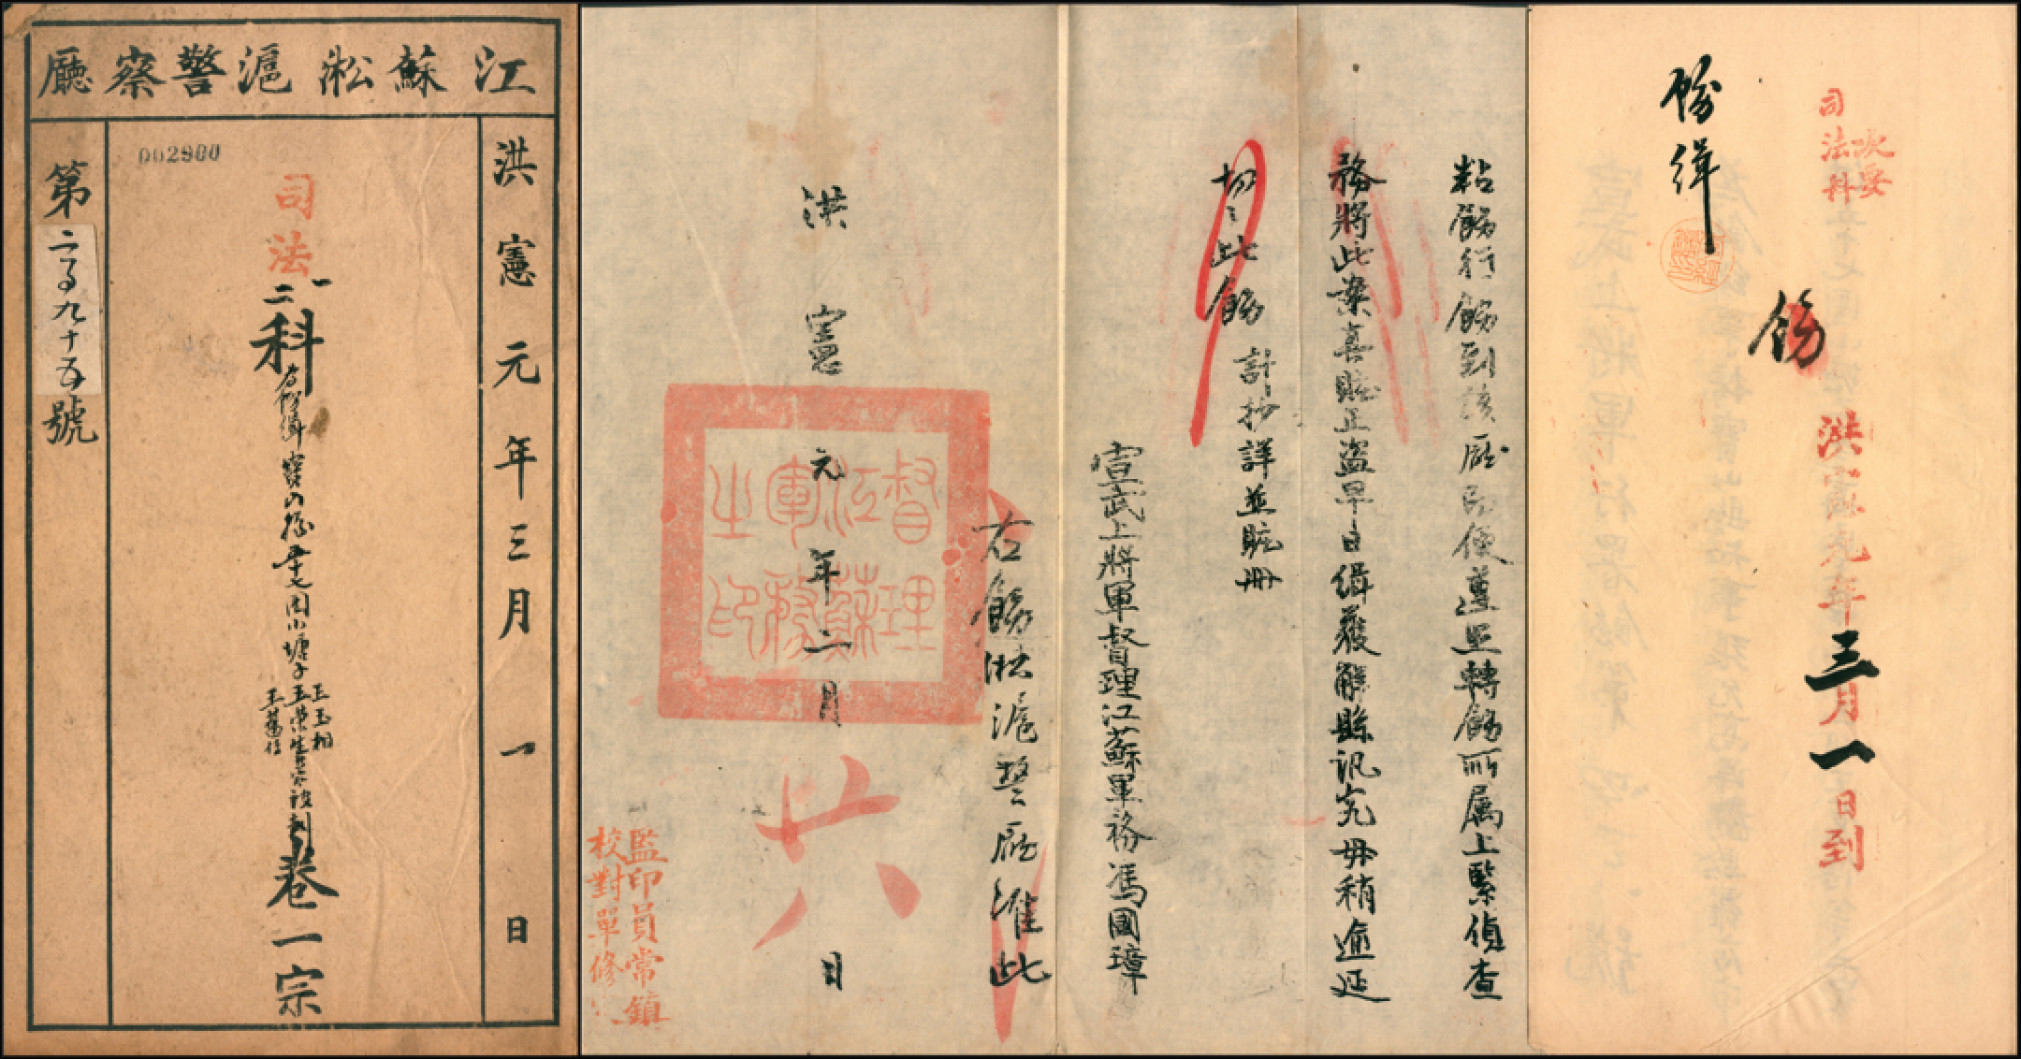 江蘇淞滬警察廳
洪憲元年三月一日
002900
司法一二科
為飭緝寶山縣
七圖小塘子
王玉相
王榮生
家被刦
卷一宗
第二百九十五號
粘飭行飭到該廳即便遵照轉飭所属上緊偵查
務將此案喜賍正盜早日緝獲解縣訊究毋稍逾延
切〻此飭
計抄詳並賍冊
宣武上將軍督理江蘇軍務馮國璋
右飭淞滬警廳准此
洪憲元年二月 日
督理江蘇軍務之印
監印員常鎮
校對單修
次要
司法科
飭緝
飭
洪憲元年三月一日到